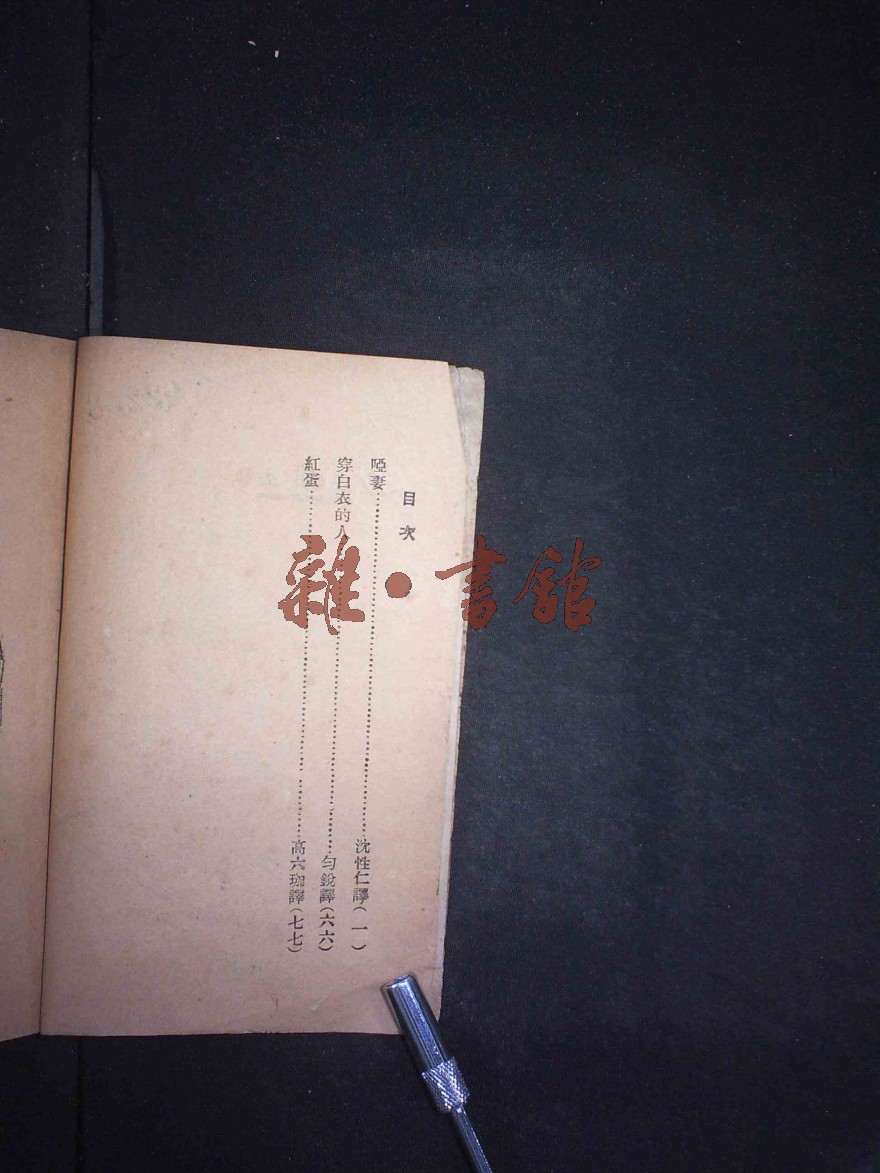 目次
啞妻⋯⋯⋯⋯⋯⋯⋯⋯沈性仁譯(一)
穿白衣的人⋯⋯⋯⋯⋯⋯⋯⋯勻銳譯(六六)
紅蛋⋯⋯⋯⋯⋯⋯⋯⋯高六珈譯(七七)
雜·書館